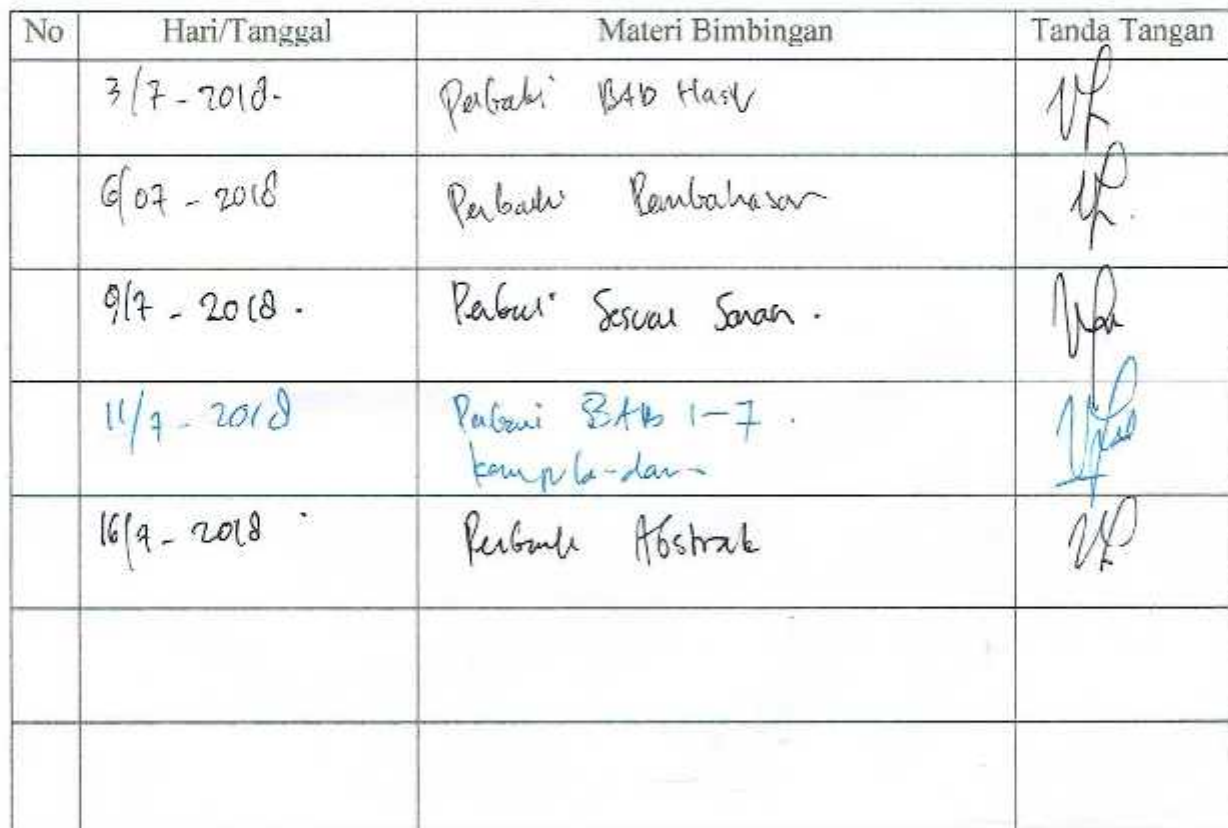 No Hari/Tanggal Materi Bimbingan Tanda Tangan
3/7 - 2018. Perbaiki BAB Hasil
6/07 - 2018 Perbaiki Pembahasan
9/7 - 2018. Perbaiki Sesuai Saran.
11/7 - 2018 Perbaiki BAB 1-7.
16/7 - 2018 Perbaiki Abstrak